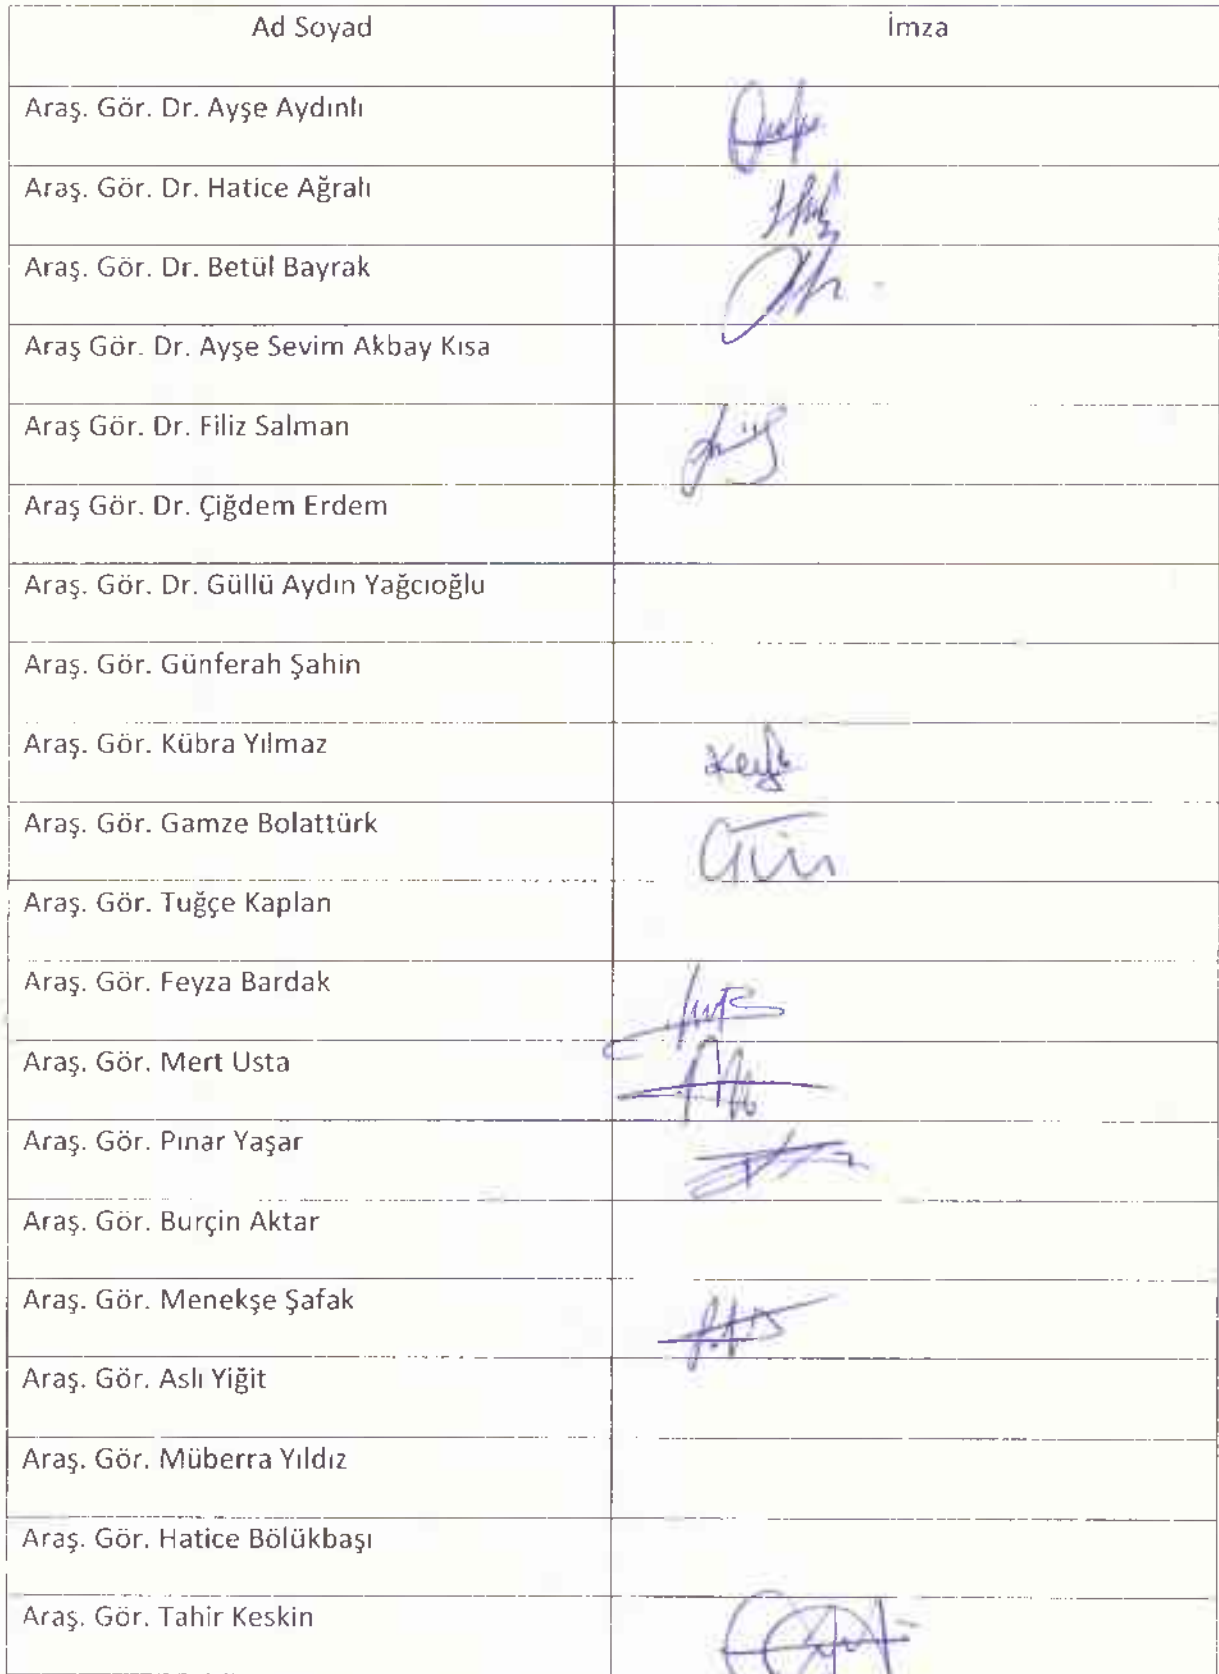 Ad Soyad
İmza
Araş. Gör. Dr. Ayşe Aydınlı
Araş. Gör. Dr. Hatice Ağralı
Araş. Gör. Dr. Betül Bayrak
Araş Gör. Dr. Ayşe Sevim Akbay Kısa
Araş Gör. Dr. Filiz Salman
Araş Gör. Dr. Çiğdem Erdem
Araş. Gör. Dr. Güllü Aydın Yağcıoğlu
Araş. Gör. Günferah Şahin
Araş. Gör. Kübra Yılmaz
Araş. Gör. Gamze Bolattürk
Araş. Gör. Tuğçe Kaplan
Araş. Gör. Feyza Bardak
Araş. Gör. Mert Usta
Araş. Gör. Pınar Yaşar
Araş. Gör. Burçin Aktar
Araş. Gör. Menekşe Şafak
Araş. Gör. Aslı Yiğit
Araş. Gör. Müberra Yıldız
Araş. Gör. Hatice Bölükbaşı
Araş. Gör. Tahir Keskin